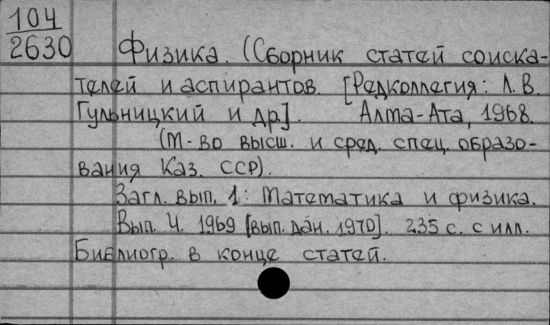 104
2630
Физика. (Сборник статей соиска-
телей и аспирантов. [Редколлегия: Л. В.
Гульницкий и др.]. Алма-Ата, 1968.
(М-во высш. и сред. спец. образо-
вания Каз. ССР).
Загл. вып. 1: Математика и физика.
Вып. 4. 1969 [вып. дан. 1970]. 235 с. с илл.
Библиогр. в конце статей.